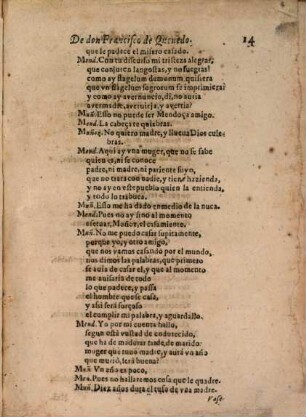 De don Francisco de Queuedo. 14
que se padece el misero casado.
Mend. Con tu discurso mi tristeza alegras,
que conjuren langostas, y no suegras!
como ay flagelum demonum quisiera
que vn flagelum sogrorum se imprimiera
y como ay avernuncio, di, no auria
avermadre, aversuegra, y avertia?
Muñ. Esso no puede ser Mendoça amigo.
Mend. La cabeça te quiebras.
Muñoz. No quiero madre, y llueua Dios culebras.
Mend. Aqui ay vna muger, que no se sabe
quien es, ni se conoce
padre, ni madre, ni pariente suyo,
que no trata con nadie, y tiene hazienda,
y no ay en este pueblo quien la entienda,
y todo lo trabuca.
Muñ. Esso me ha dado en medio de la nuca.
Mend. Pues no ay sino al momento
efetuar, Muñoz, el casamiento.
Muñ. No me puedo casar supitamente,
porque yo, y otro amigo,
que nos vamos casando por el mundo,
nos dimos las palabras, que primero
se auia de casar el, y que al momento
me auisaria de todo
lo que padece, y passa
el hombre que se casa,
y assi será forçoso
el cumplir mi palabra, y aguardallo.
Mend. Yo por mi cuenta hallo,
segun està vusted de endurecido,
que ha de madurar tarde de marido:
muger que tuuo madre, y aurá vn año
que es ya muerta, es buena?
Muñ. Vn año es poco,
Men. Pues no hallaremos cosa que le quadre.
Muñ. Diez años dura el tufo de vna madre.
Vase